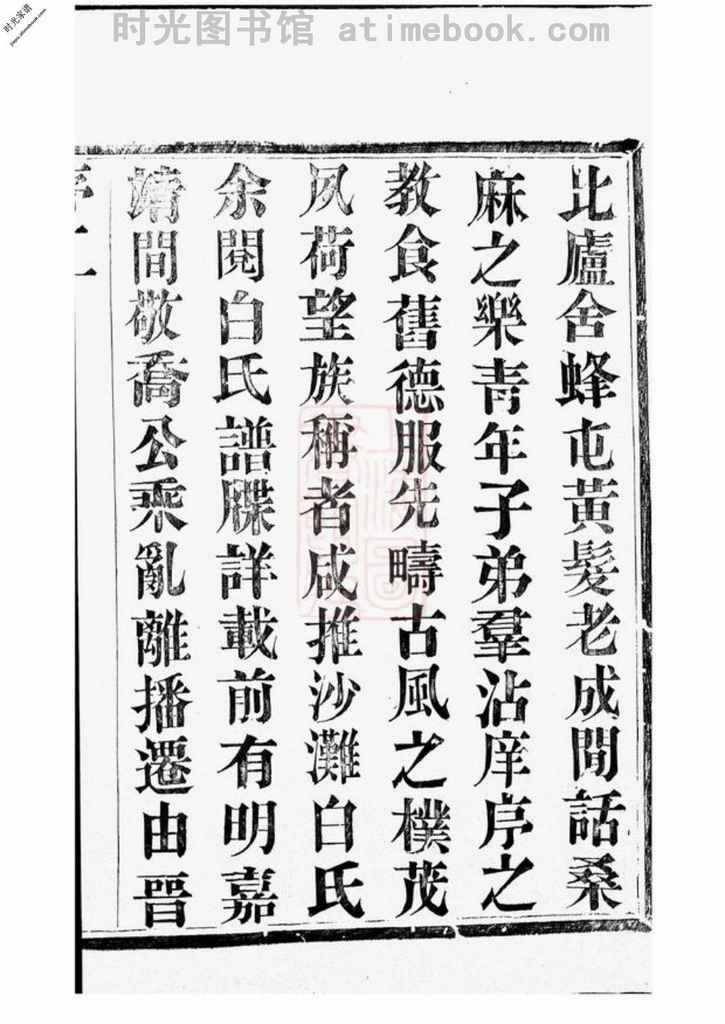 时光图书馆 atimebook.com
时光家谱
比廬舍蜂屯黃髮老成間話桑
麻之樂青年子弟羣沾庠序之
教食舊德服先疇古風之樸茂
夙荷望族稱者咸推沙灘白氏
余閱白氏譜牒詳載前有明嘉
靖間敬喬公乘亂離播遷由晋